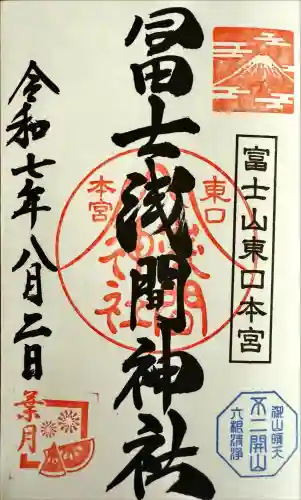 富士山東口本宮
冨士浅間神社
東口
本宮
浅間
神社
令和七年八月二日
葉月
御山晴天
不二開山
六根清浄